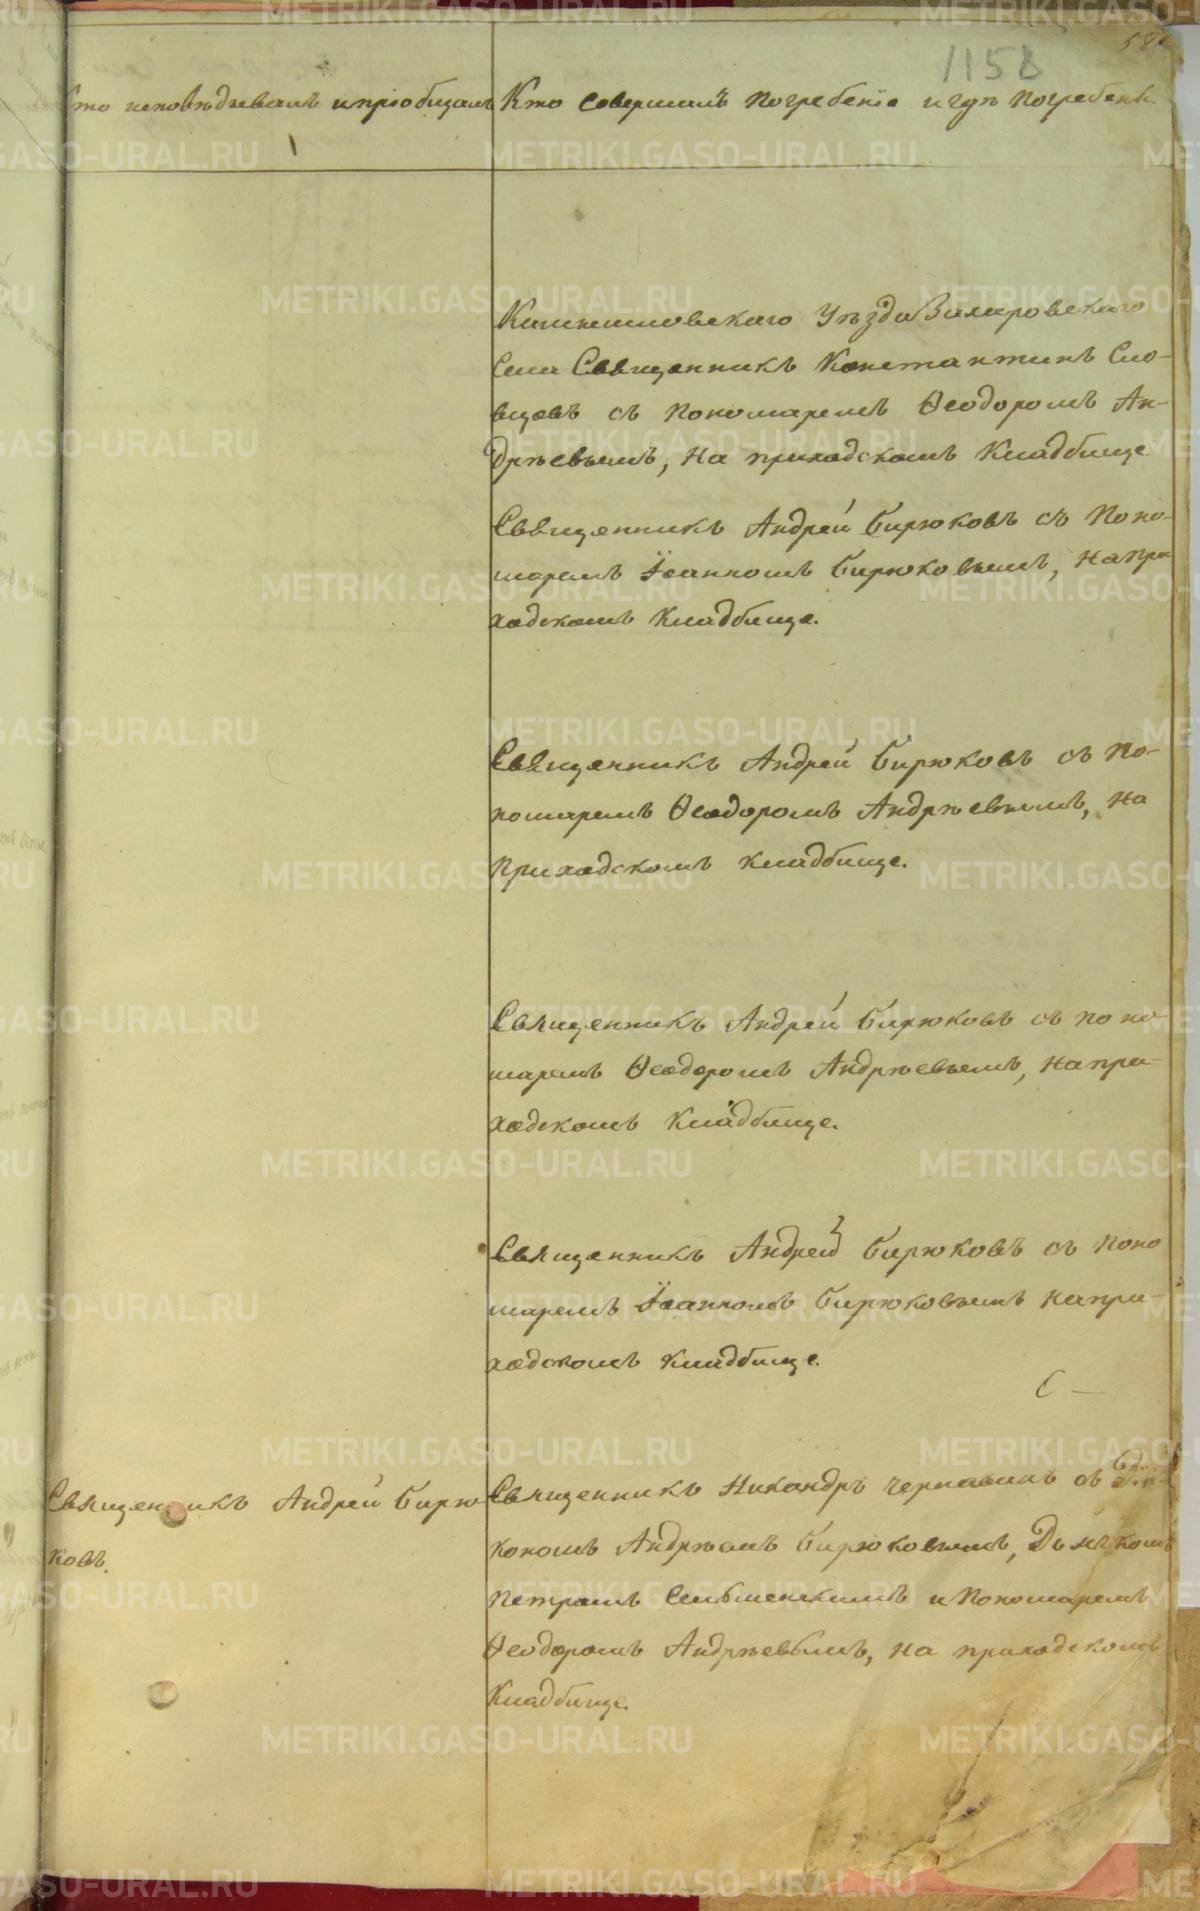 58
1158
Кто исповѣдывалъ и пріобщалъ
Кто совершалъ погребеніе и гдѣ погребены
1
Уѣзда
села Священникъ Константинъ Сло-
вцовъ съ пономаремъ Ѳеодоромъ Ан-
дрѣевымъ, на приходскомъ кладбище
Священникъ Андрей Бирюковъ съ поно-
маремъ Іоанномъ Бирюковымъ, на при
ходскомъ кладбище.
Священникъ Андрей Бирюковъ съ по-
номаремъ Ѳеодоромъ Андрѣевымъ, на
приходскомъ кладбище.
Священникъ Андрей Бирюковъ съ поно-
маремъ Ѳеодоромъ Андрѣевымъ, на при-
ходскомъ кладбище.
Священникъ Андрей Бирюковъ съ поно
маремъ Іоанномъ Бирюковымъ на при-
ходскомъ кладбище.
Священникъ Андрей Бирю-
ковъ.
Священникъ Никандръ Чернавинъ съ Діа-
кономъ Андрѣемъ Бирюковымъ, Дьячкомъ
Петромъ и Пономаремъ
Ѳеодоромъ Андрѣевымъ, на приходскомъ
кладбище.
METRIKI.GASO-URAL.RU